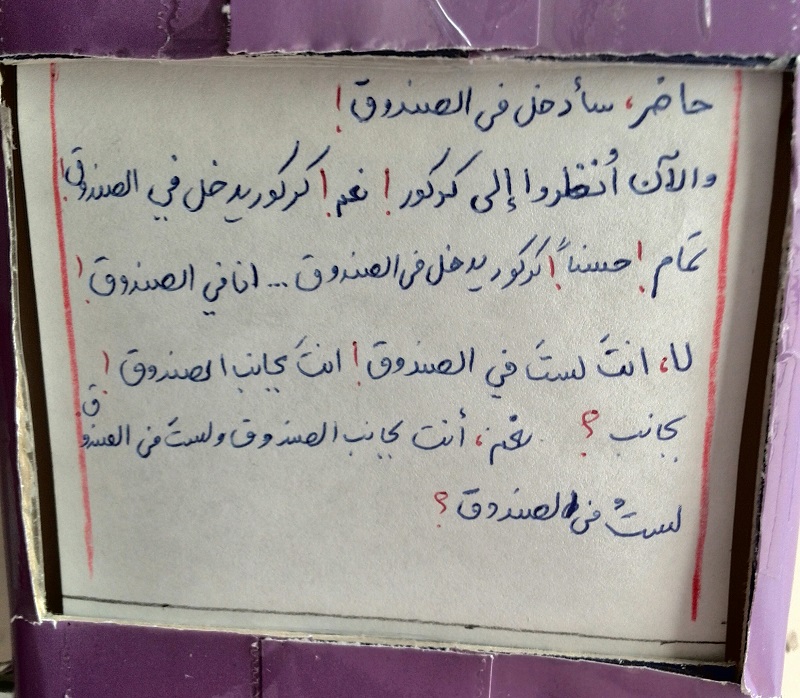 حاضر، سأدخل في الصندوق!
والآن أُنظروا إلى كركور! نعم! كركور يدخل في الصندوق!
تمام! حسناً! كركور يدخل في الصندوق... انا في الصندوق!
لا، انتَ لستَ في الصندوق! انتَ بجانب الصندوق!
بجانب؟ نعم، أنت بجانب الصندوق ولستَ في الصندوق
لستُ في الصندوق؟